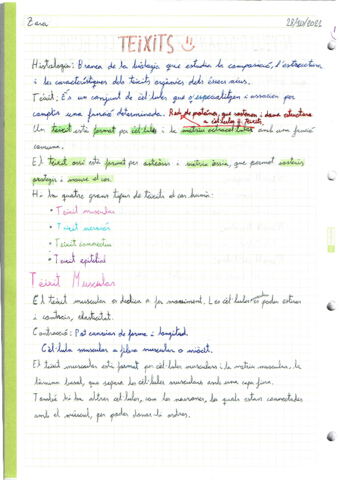 Zara
28/10/2021
TEIXITS
Histologia: Branca de la biologia que estudia la composició, l'estructura
i les característiques dels teixits orgànics dels éssers vius.
Teixit: És un conjunt de cèl·lules que s'especialitzen i associen per
complir una funció determinada. Red de proteïnes, que sostenen i dona estructura
a cèl·lules i teixits.
Un teixit està format per cèl·lules i la matriu extracel·lular amb una funció
comuna.
El teixit ossi està format per osteòcits i matriu òssia, que permet sostenir
protegir i moure el cos.
Hi ha quatre grans tipus de teixits al cos humà:
• Teixit muscular
• Teixit nerviós
• Teixit connectiu
• Teixit epitelial
Teixit Muscular
El teixit muscular es dedica a fer moviment. Les cèl·lules poden estirar
i contraure, elasticitat.
Contracció: Pot canviar de forma i longitud.
Cèl·lula muscular = fibra muscular o miòcit.
El teixit muscular està format per cèl·lules musculars i la matriu muscular, la
làmina basal, que separa les cèl·lules musculars amb una capa fina.
També hi ha altres cèl·lules, com les neurones, les quals estan connectades
amb el múscul, per poder donar-li ordres.